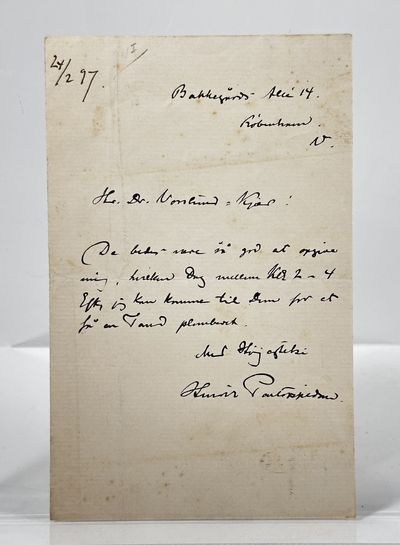 24/2 97.
Bakkegårds Alle 14.
København
V.
Hr. Dr. Vorslund-Kjær!
De bedes være så god at opgive
mig, hvilken Dag mellem Kl 2-4
Eft. jeg kan komme til Dem for at
få en Tand plomberet.
Med Højagtelse
Henrik Pontoppidan.